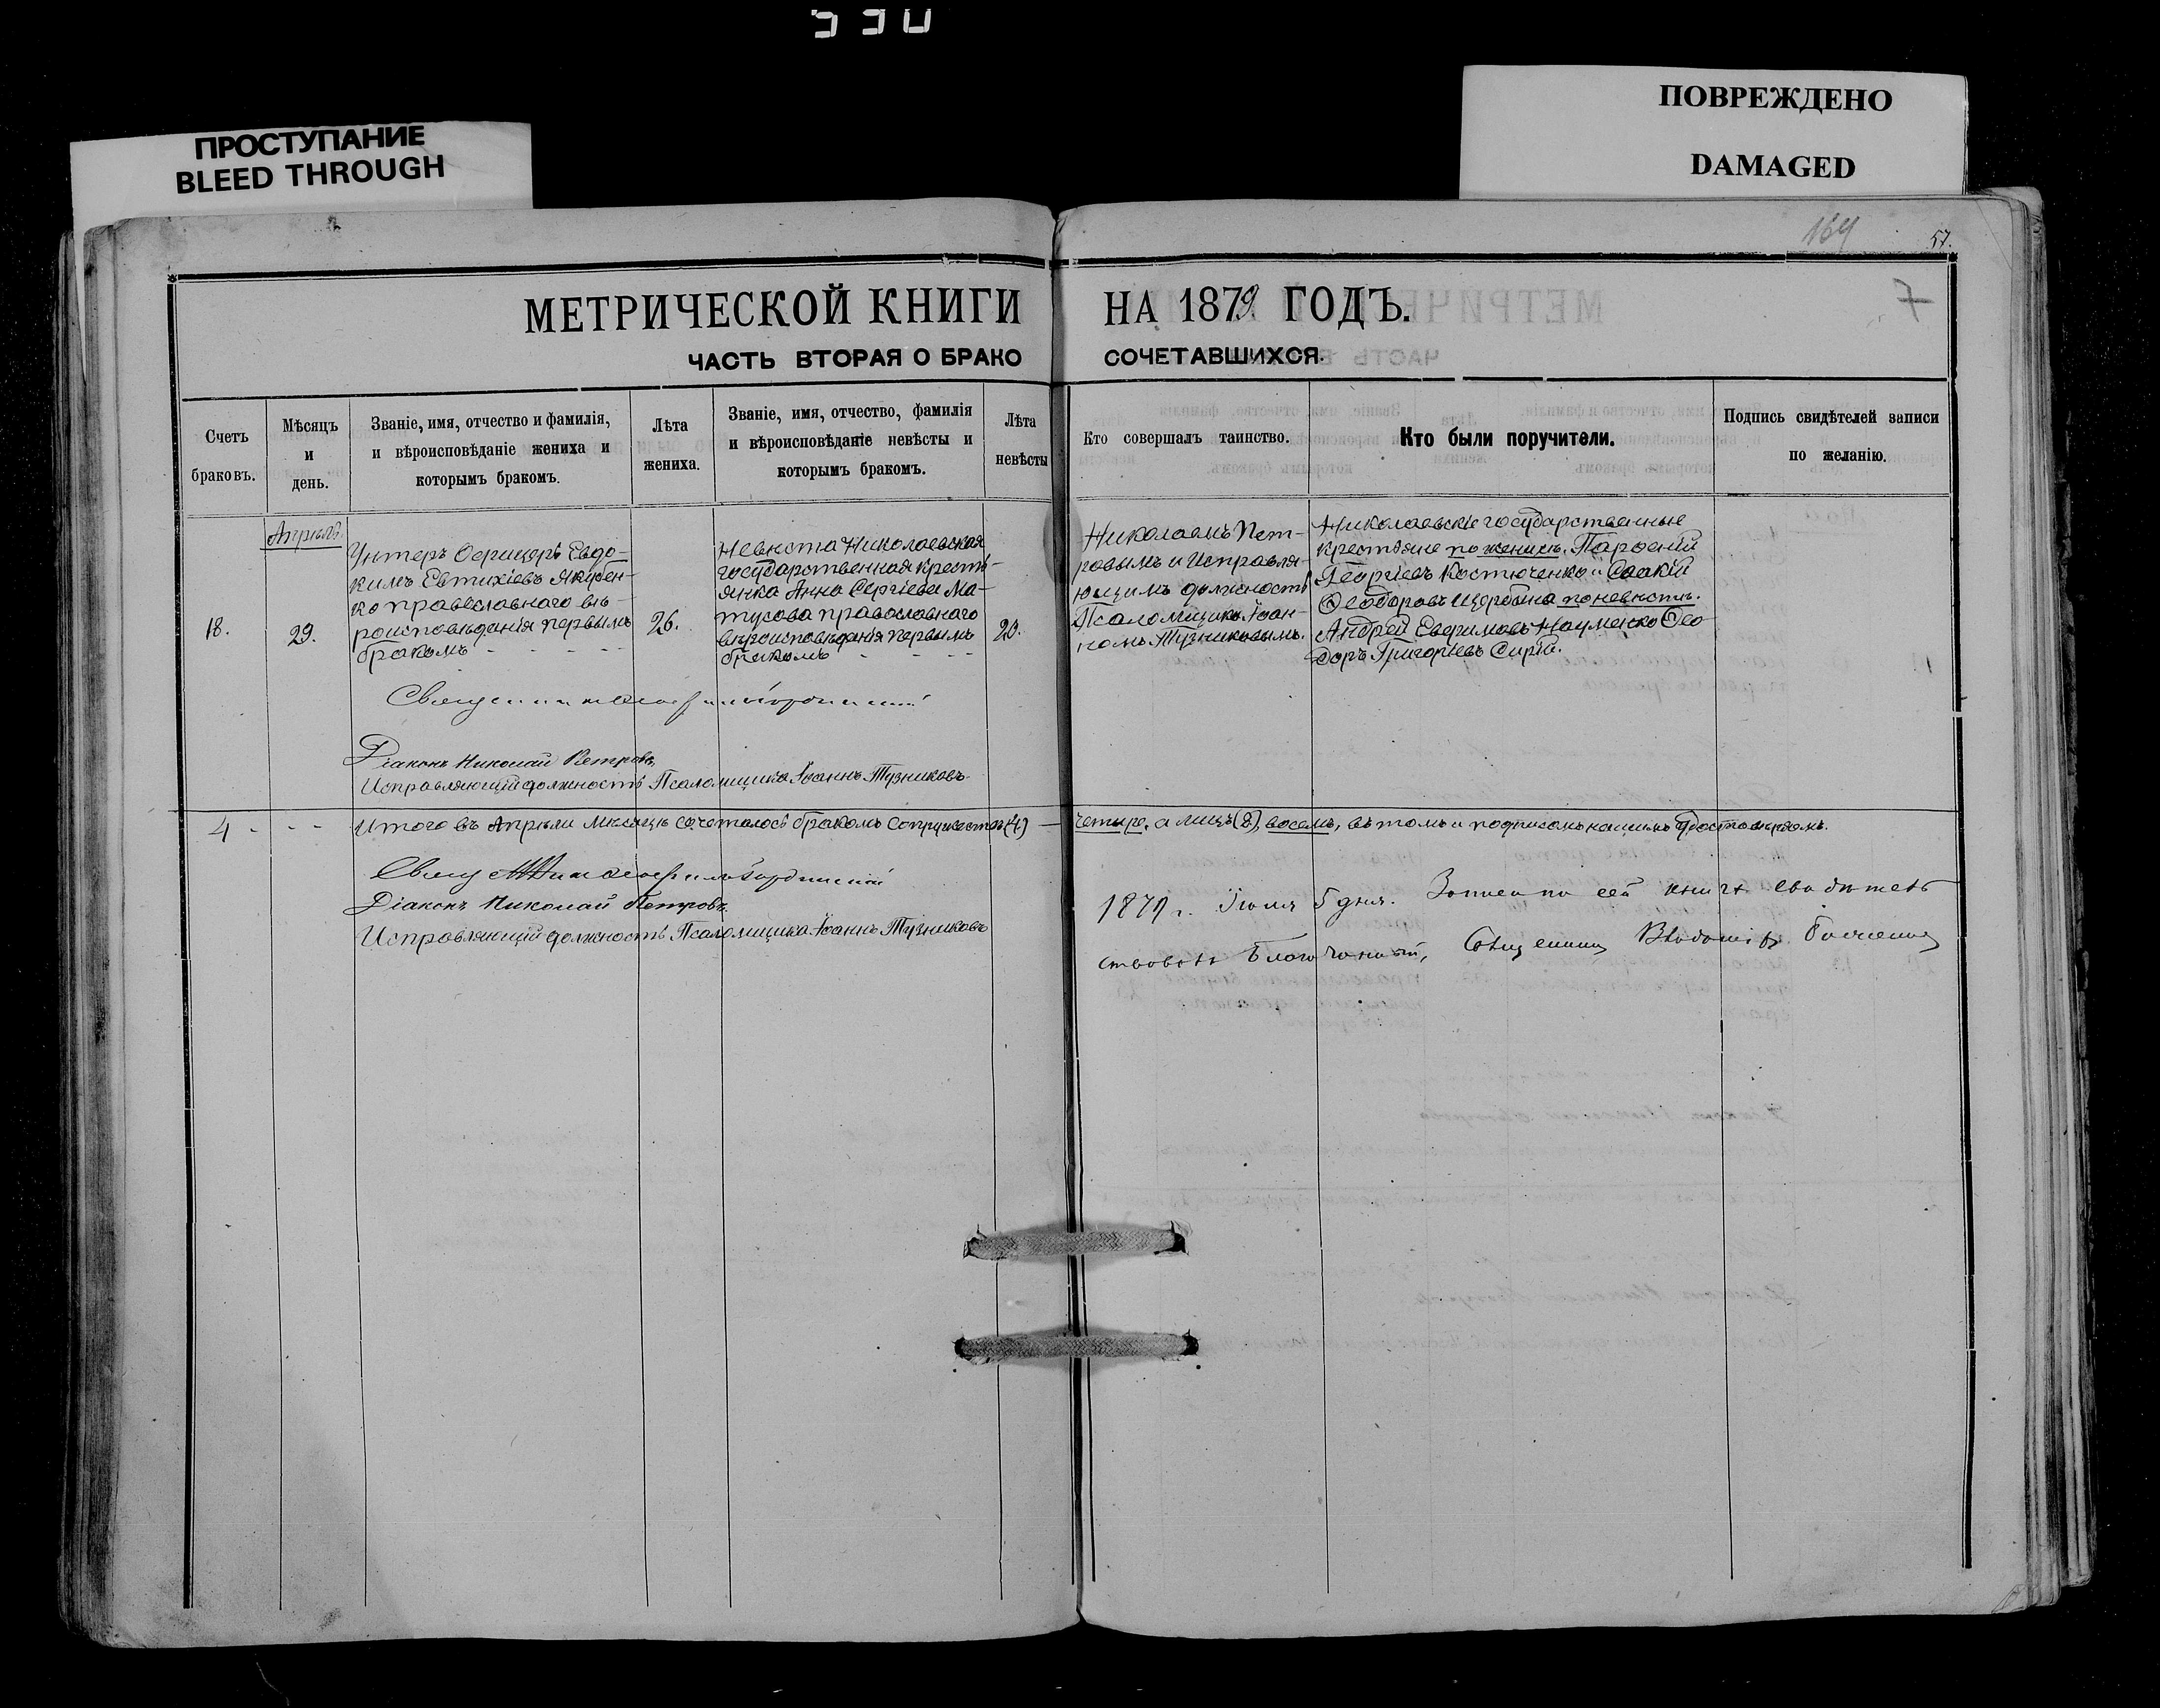 530
ПРОСТУПАНИЕ
BLEED THROUGH
ПОВРЕЖДЕНО
DAMAGED
164
57.
7
МЕТРИЧЕСКОЙ КНИГИ НА 1879 ГОДЪ.
ЧАСТЬ ВТОРАЯ О БРАКОСОЧЕТАВШИХСЯ.
Счетъ
браковъ.
Мѣсяцъ
и
день.
Званіе, имя, отчество и фамилія,
и вѣроисповѣданіе жениха и
которымъ бракомъ.
Лѣта
жениха.
Званіе, имя, отчество, фамилія
и вѣроисповѣданіе невѣсты и
которымъ бракомъ.
Лѣта
невѣсты
Кто совершалъ таинство.
Кто были поручители.
Подпись свидѣтелей записи
по желанію.
Апрѣль.
18.
29.
Унтеръ Офицеръ Евдо-
кимъ Евтихіевъ Якубен-
ко православнаго вѣ-
роисповѣданія первымъ
бракомъ
26.
Невѣста Николаевская
государственная кресть-
янка Анна Сергіева Ма-
тусова православнаго
вѣроисповѣданія первымъ
бракомъ
20.
Николаемъ Пет-
ровымъ и Исправля-
ющимъ должность
Псаломщика Іоан-
номъ Тузниковымъ.
Николаевскіе государственные
крестьяне по женихѣ. Парѳеній
Георгіевъ Костюченко и
Ѳеодоровъ Щербина по невѣстѣ.
Андрей Евѳимовъ Науменко Ѳео-
доръ Григорьевъ Сирта.
Діаконъ Николай Петровъ
Исправляющій должность Псаломщика Іоаннъ Тузниковъ
4
Итого въ Апрѣлѣ мѣсяцѣ сочеталось бракомъ супружествъ (4) четыре, а лицъ (8) восемь, въ томъ и подписомъ нашимъ удостовѣряемъ.
Діаконъ Николай Петровъ.
Исправляющій должность Псаломщика Іоаннъ Тузниковъ
1879 г. Іюля 5 дня. Записи по сей книгѣ свидѣтель
ствовалъ Благочинный, Священникъ